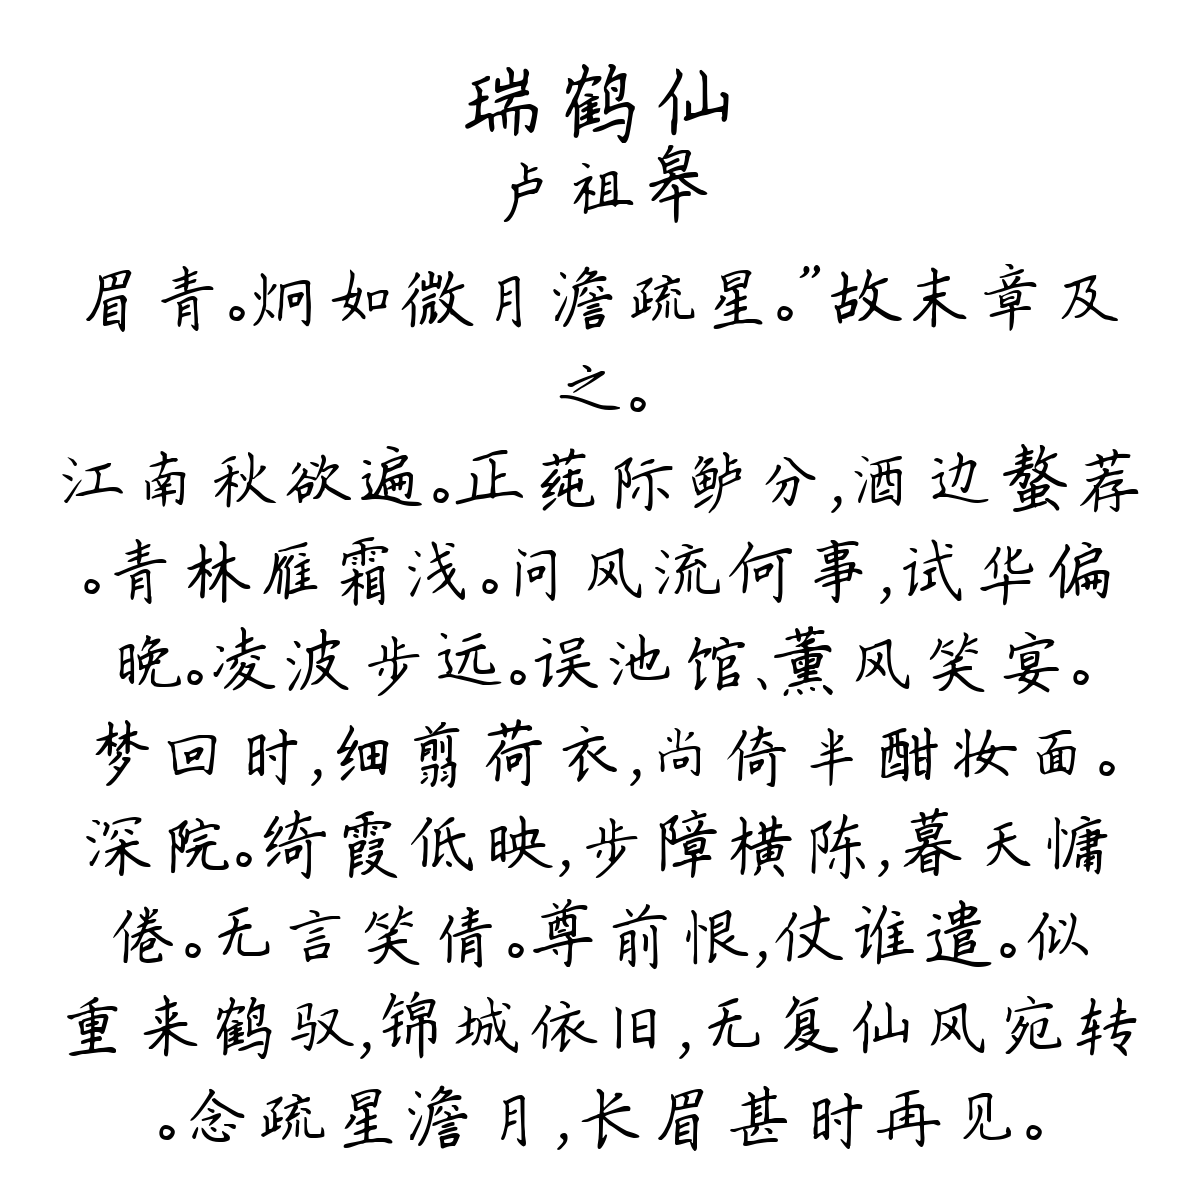 瑞鹤仙
卢祖皋
眉青。炯如微月澹疏星。”故末章及
之。
江南秋欲遍。正莼际鲈分,酒边螯荐
。青林雁霜浅。问风流何事,试华偏
晚。凌波步远。误池馆、薰风笑宴。
梦回时,细翦荷衣,尚倚半酣妆面。
深院。绮霞低映,步障横陈,暮天慵
倦。无言笑倩。尊前恨,仗谁遣。似
重来鹤驭,锦城依旧,无复仙风宛转
。念疏星澹月,长眉甚时再见。